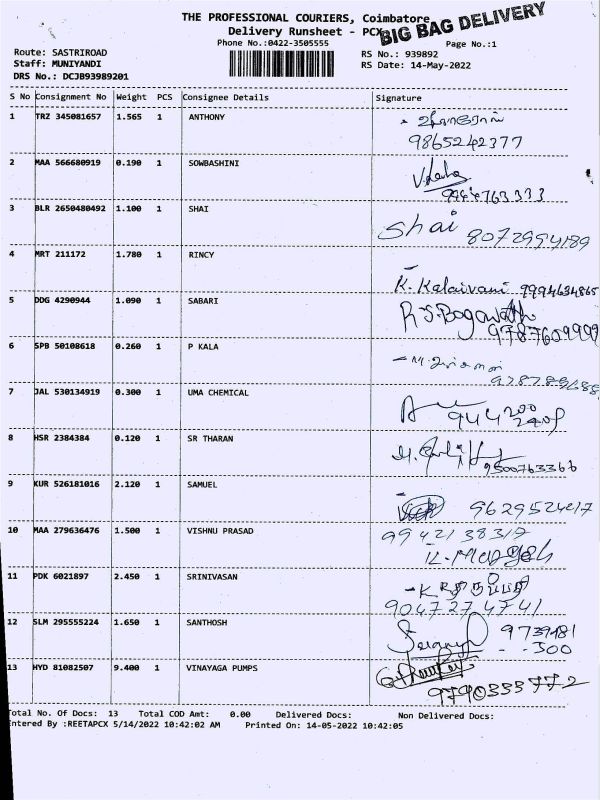 THE PROFESSIONAL COURIERS, Coimbatore
BIG BAG DELIVERY
Delivery Runsheet - PCX
Phone No.:0422-3505555
Page No.:1
Route: SASTRIROAD
RS No.: 939892
Staff: MUNIYANDI
RS Date: 14-May-2022
DRS No.: DCJB93989201
S No Consignment No Weight PCS Consignee Details Signature
1 TRZ 345081657 1.565 1 ANTHONY
9865242377
2 MAA 566680919 0.190 1 SOWBASHINI
9944763333
3 BLR 2650480492 1.100 1 SHAI Shai 8072994189
4 MRT 211172 1.780 1 RINCY
K. Kalaivani 9994634865
5 DDG 4290944 1.090 1 SABARI
9787609999
6 SPB 50108618 0.260 1 P KALA
7 JAL 530134919 0.300 1 UMA CHEMICAL
8 HSR 2384384 0.120 1 SR THARAN
9500763366
9 KUR 526181016 2.120 1 SAMUEL
9629524217
10 MAA 279636476 1.500 1 VISHNU PRASAD
11 PDK 6021897 2.450 1 SRINIVASAN
9047274741
12 SLM 295555224 1.650 1 SANTHOSH
13 HYD 81082507 9.400 1 VINAYAGA PUMPS
9790333772
Total No. Of Docs: 13 Total COD Amt: 0.00 Delivered Docs: Non Delivered Docs:
Entered By :REETAPCX 5/14/2022 10:42:02 AM Printed On: 14-05-2022 10:42:05